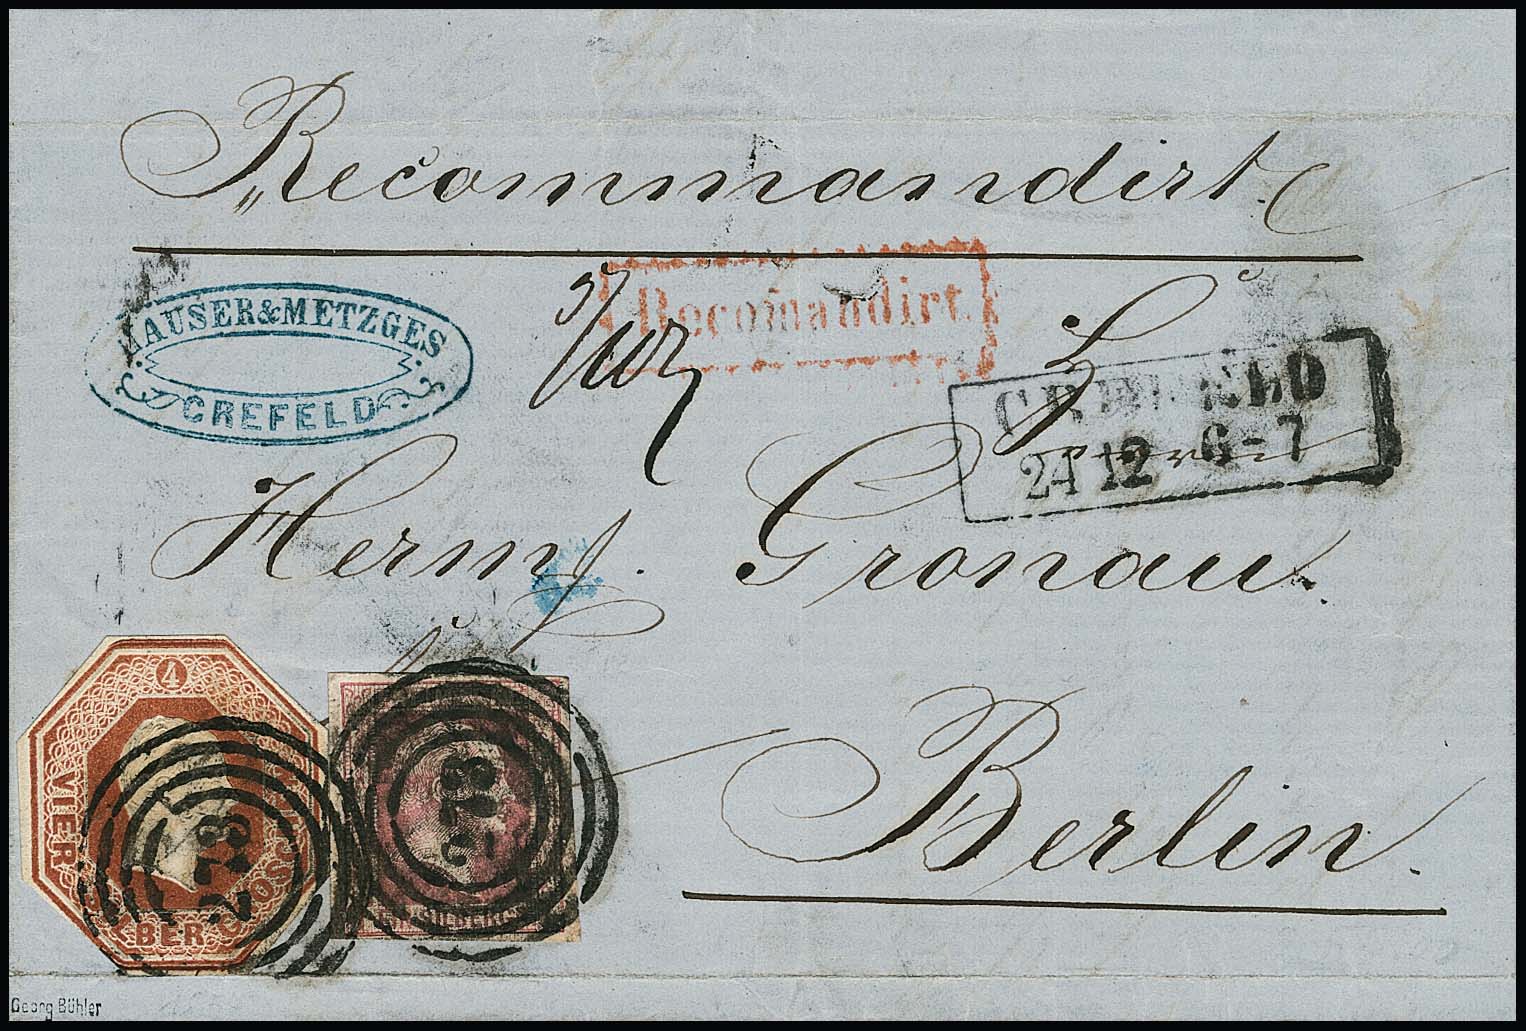 Recommandirt.
HAUSER & METZGES
CREFELD
Recomandirt.
CREFELD
24 12 6-7
Herrn H. Gronau.
Berlin.
4
VIER SILBERGROS
278
278
SILBERGR
Georg Bühler